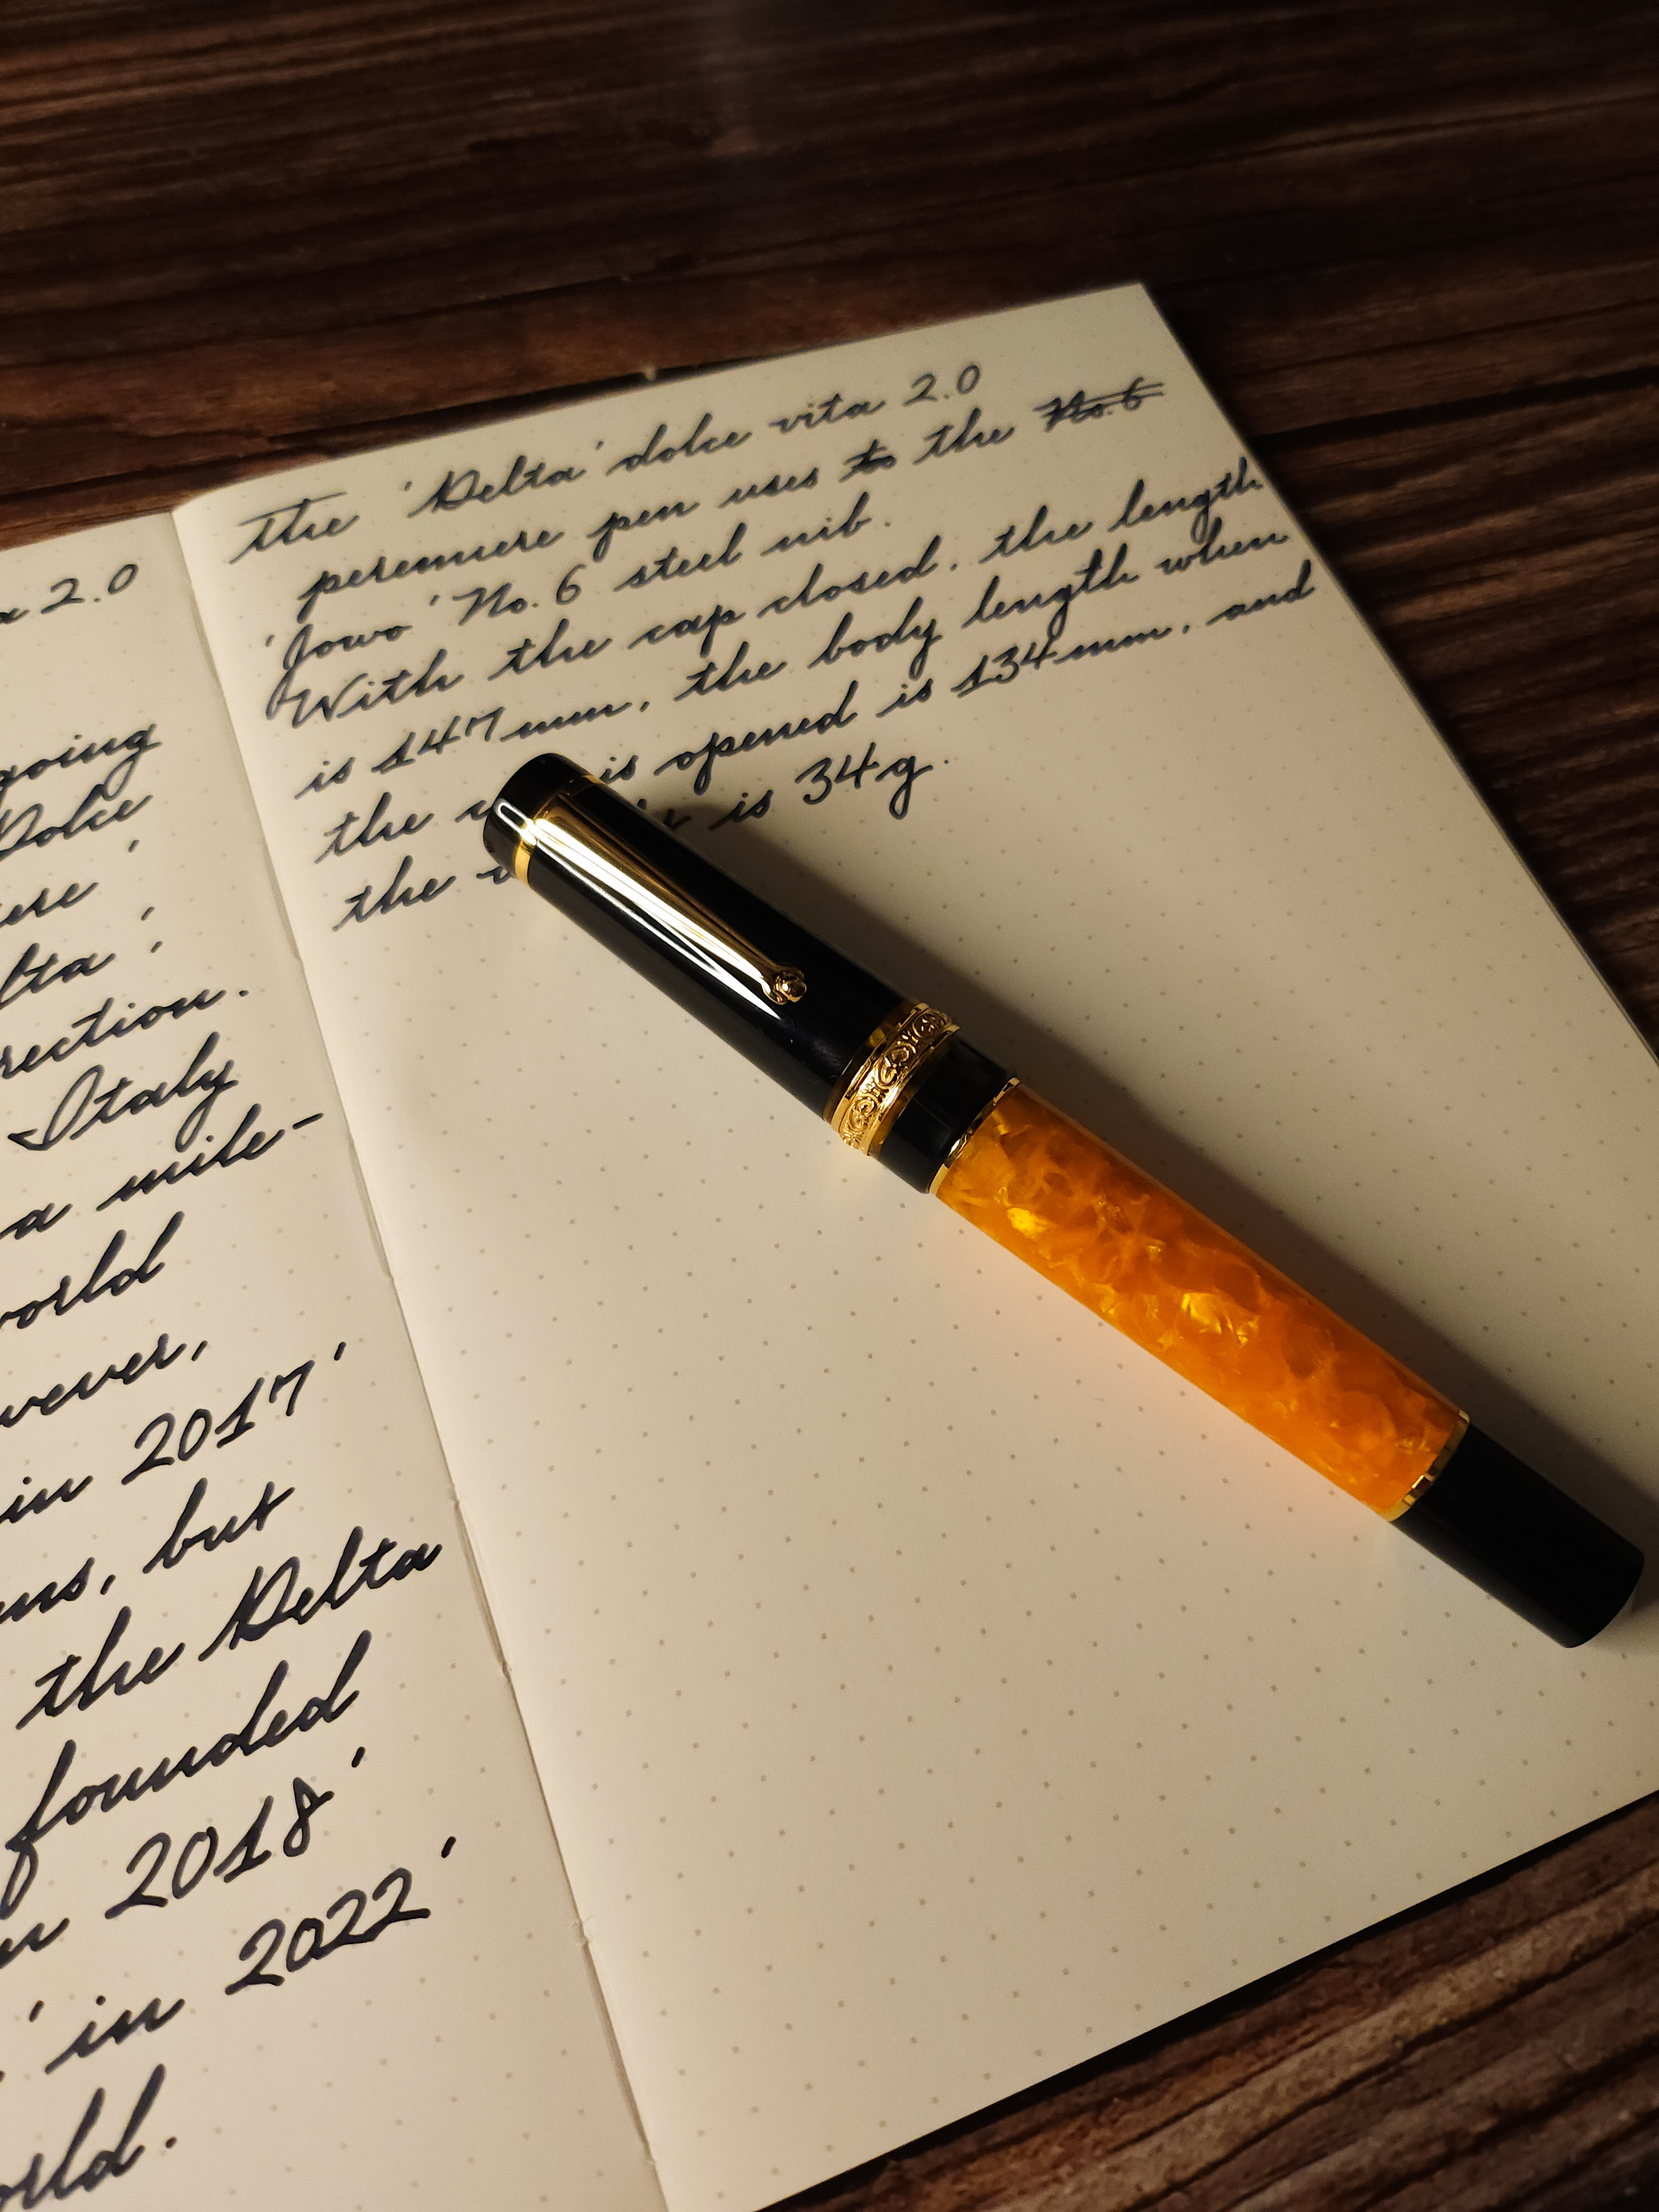 2.0
going
Dolce
'
'
Italy
a mile-
world
in 2017'
but
the Delta
founded
2018'
' in 2022'
The 'Delta' dolce vita 2.0
peremiere pen uses to the No.6
'Jowo' No.6 steel nib.
With the cap closed, the length
is 147mm, the body length when
the is opened is 134mm, and
the is 34g.